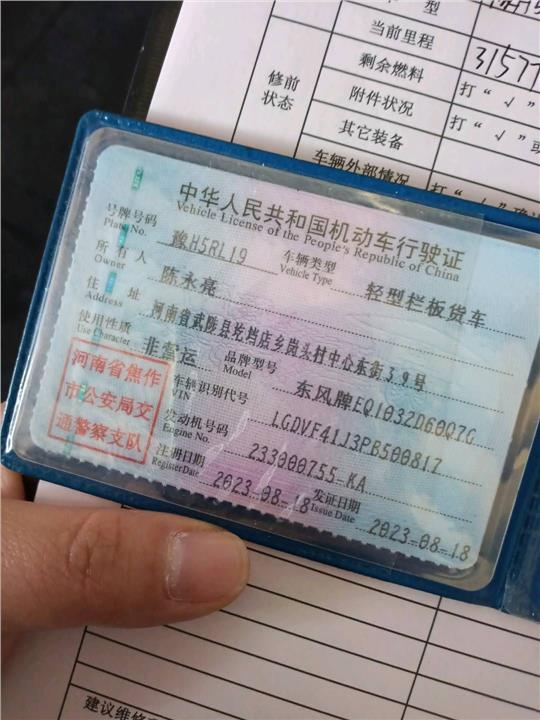 型
当前里程
3157
剩余燃料
打“√”
修前
状态
附件状况
打“√”或
其它装备
车辆外部情况
中华人民共和国机动车行驶证
Vehicle License of the People's Republic of China
号牌号码
Plate No.
豫H5RL19
车辆类型
Vehicle Type
轻型栏板货车
所有人
Owner
陈永亮
住址
Address
河南省武陟县圪垱店乡岗头村中心东街39号
使用性质
Use Character
非营运
品牌型号
Model
东风牌EQ1032D60Q7G
河南省焦作
市公安局交
通警察支队
车辆识别代号
VIN
LGDVF41J3PB500817
发动机号码
Engine No.
233000755-KA
注册日期
Register Date
2023-08-18
发证日期
Issue Date
2023-08-18